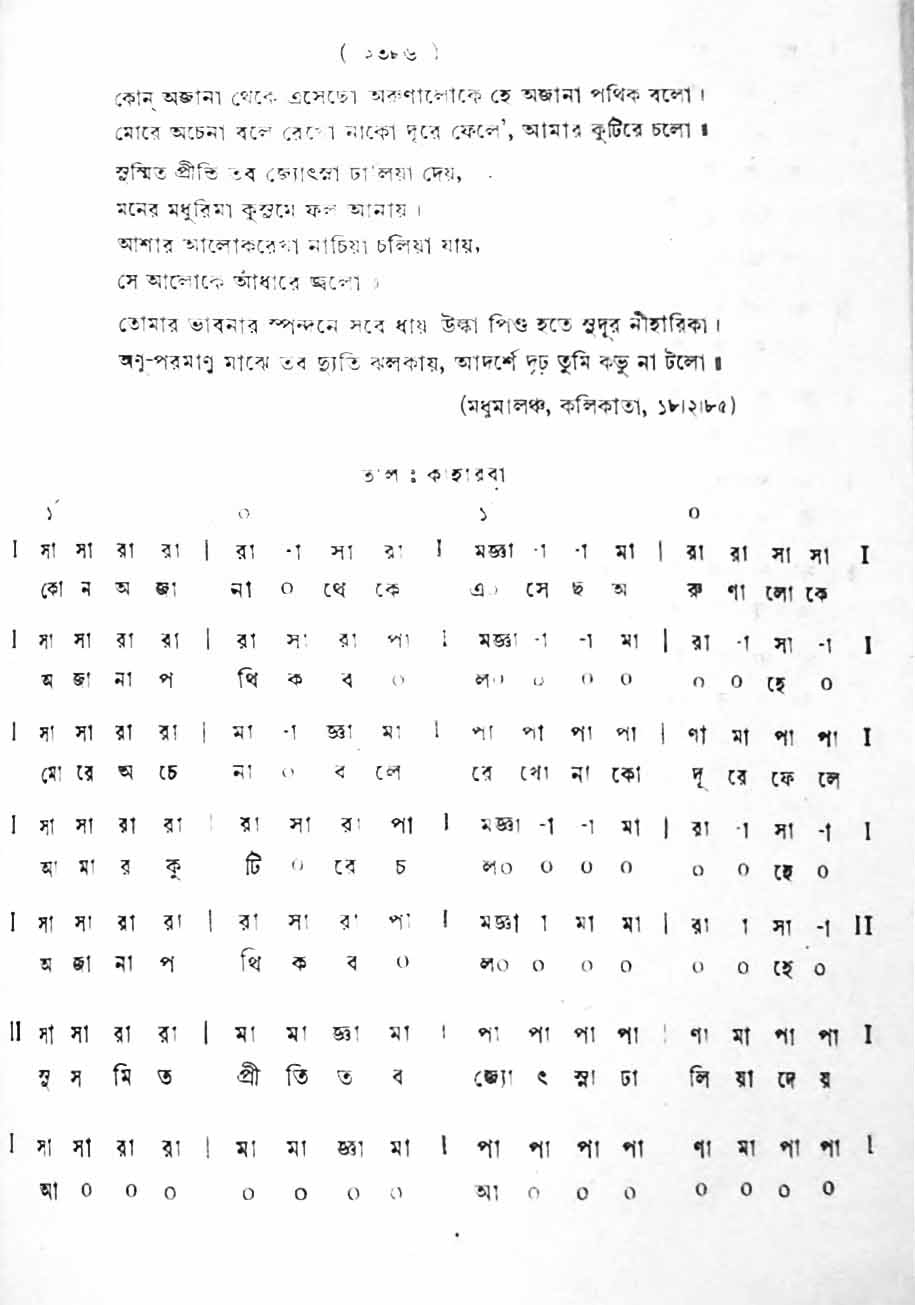 ( ২৩৮৬ )
কোন্ অজানা থেকে এসেছো অরুণালোকে হে অজানা পথিক বলো ।
মোরে অচেনা বলে রেখো নাকো দূরে ফেলে', আমার কুটিরে চলো ॥
সুস্মিত প্রীতি তব জ্যোৎস্না ঢালিয়া দেয়,
মনের মধুরিমা কুসুমে ফল আনায় ।
আশার আলোকরেখা নাচিয়া চলিয়া যায়,
সে আলোকে আঁধারে জ্বলো ।
তোমার ভাবনার স্পন্দনে সবে ধায় উল্কা পিণ্ড হতে সুদূর নীহারিকা ।
অণু-পরমাণু মাঝে তব দ্যুতি ঝলকায়, আদর্শে দৃঢ় তুমি কভু না টলো ॥
(মধুমালঞ্চ, কলিকাতা, ১৮।২।৮৫)
তাল : কাহারবা
১´ ০ ১ ০
I সা সা রা রা | রা -া সা রা I মজ্ঞা -া -া মা | রা রা সা সা I
কো ন অ জা না ০ থে কে এ ০ সে ছ অ রু ণা লো কে
I সা সা রা রা | রা সা রা পা I মজ্ঞা -া -া মা | রা -া সা -া I
অ জা না প থি ক ব ০ ল০ ০ ০ ০ ০ ০ হে ০
I সা সা রা রা | মা -া জ্ঞা মা I পা পা পা পা | ণা মা পা পা I
মো রে অ চে না ০ ব লে রে খো না কো দূ রে ফে লে
I সা সা রা রা | রা সা রা পা I মজ্ঞা -া -া মা | রা -া সা -া I
আ মা র কু টি ০ রে চ ল০ ০ ০ ০ ০ ০ হে ০
I সা সা রা রা | রা সা রা পা I মজ্ঞা া মা মা | রা া সা -া II
অ জা না প থি ক ব ০ ল০ ০ ০ ০ ০ ০ হে ০
II সা সা রা রা | মা মা জ্ঞা মা I পা পা পা পা | ণা মা পা পা I
সু স মি ত প্রী তি ত ব জ্যো ৎ স্না ঢা লি য়া দে য়
I সা সা রা রা | মা মা জ্ঞা মা I পা পা পা পা ণা মা পা পা I
আ ০ ০ ০ ০ ০ ০ ০ আ ০ ০ ০ ০ ০ ০ ০